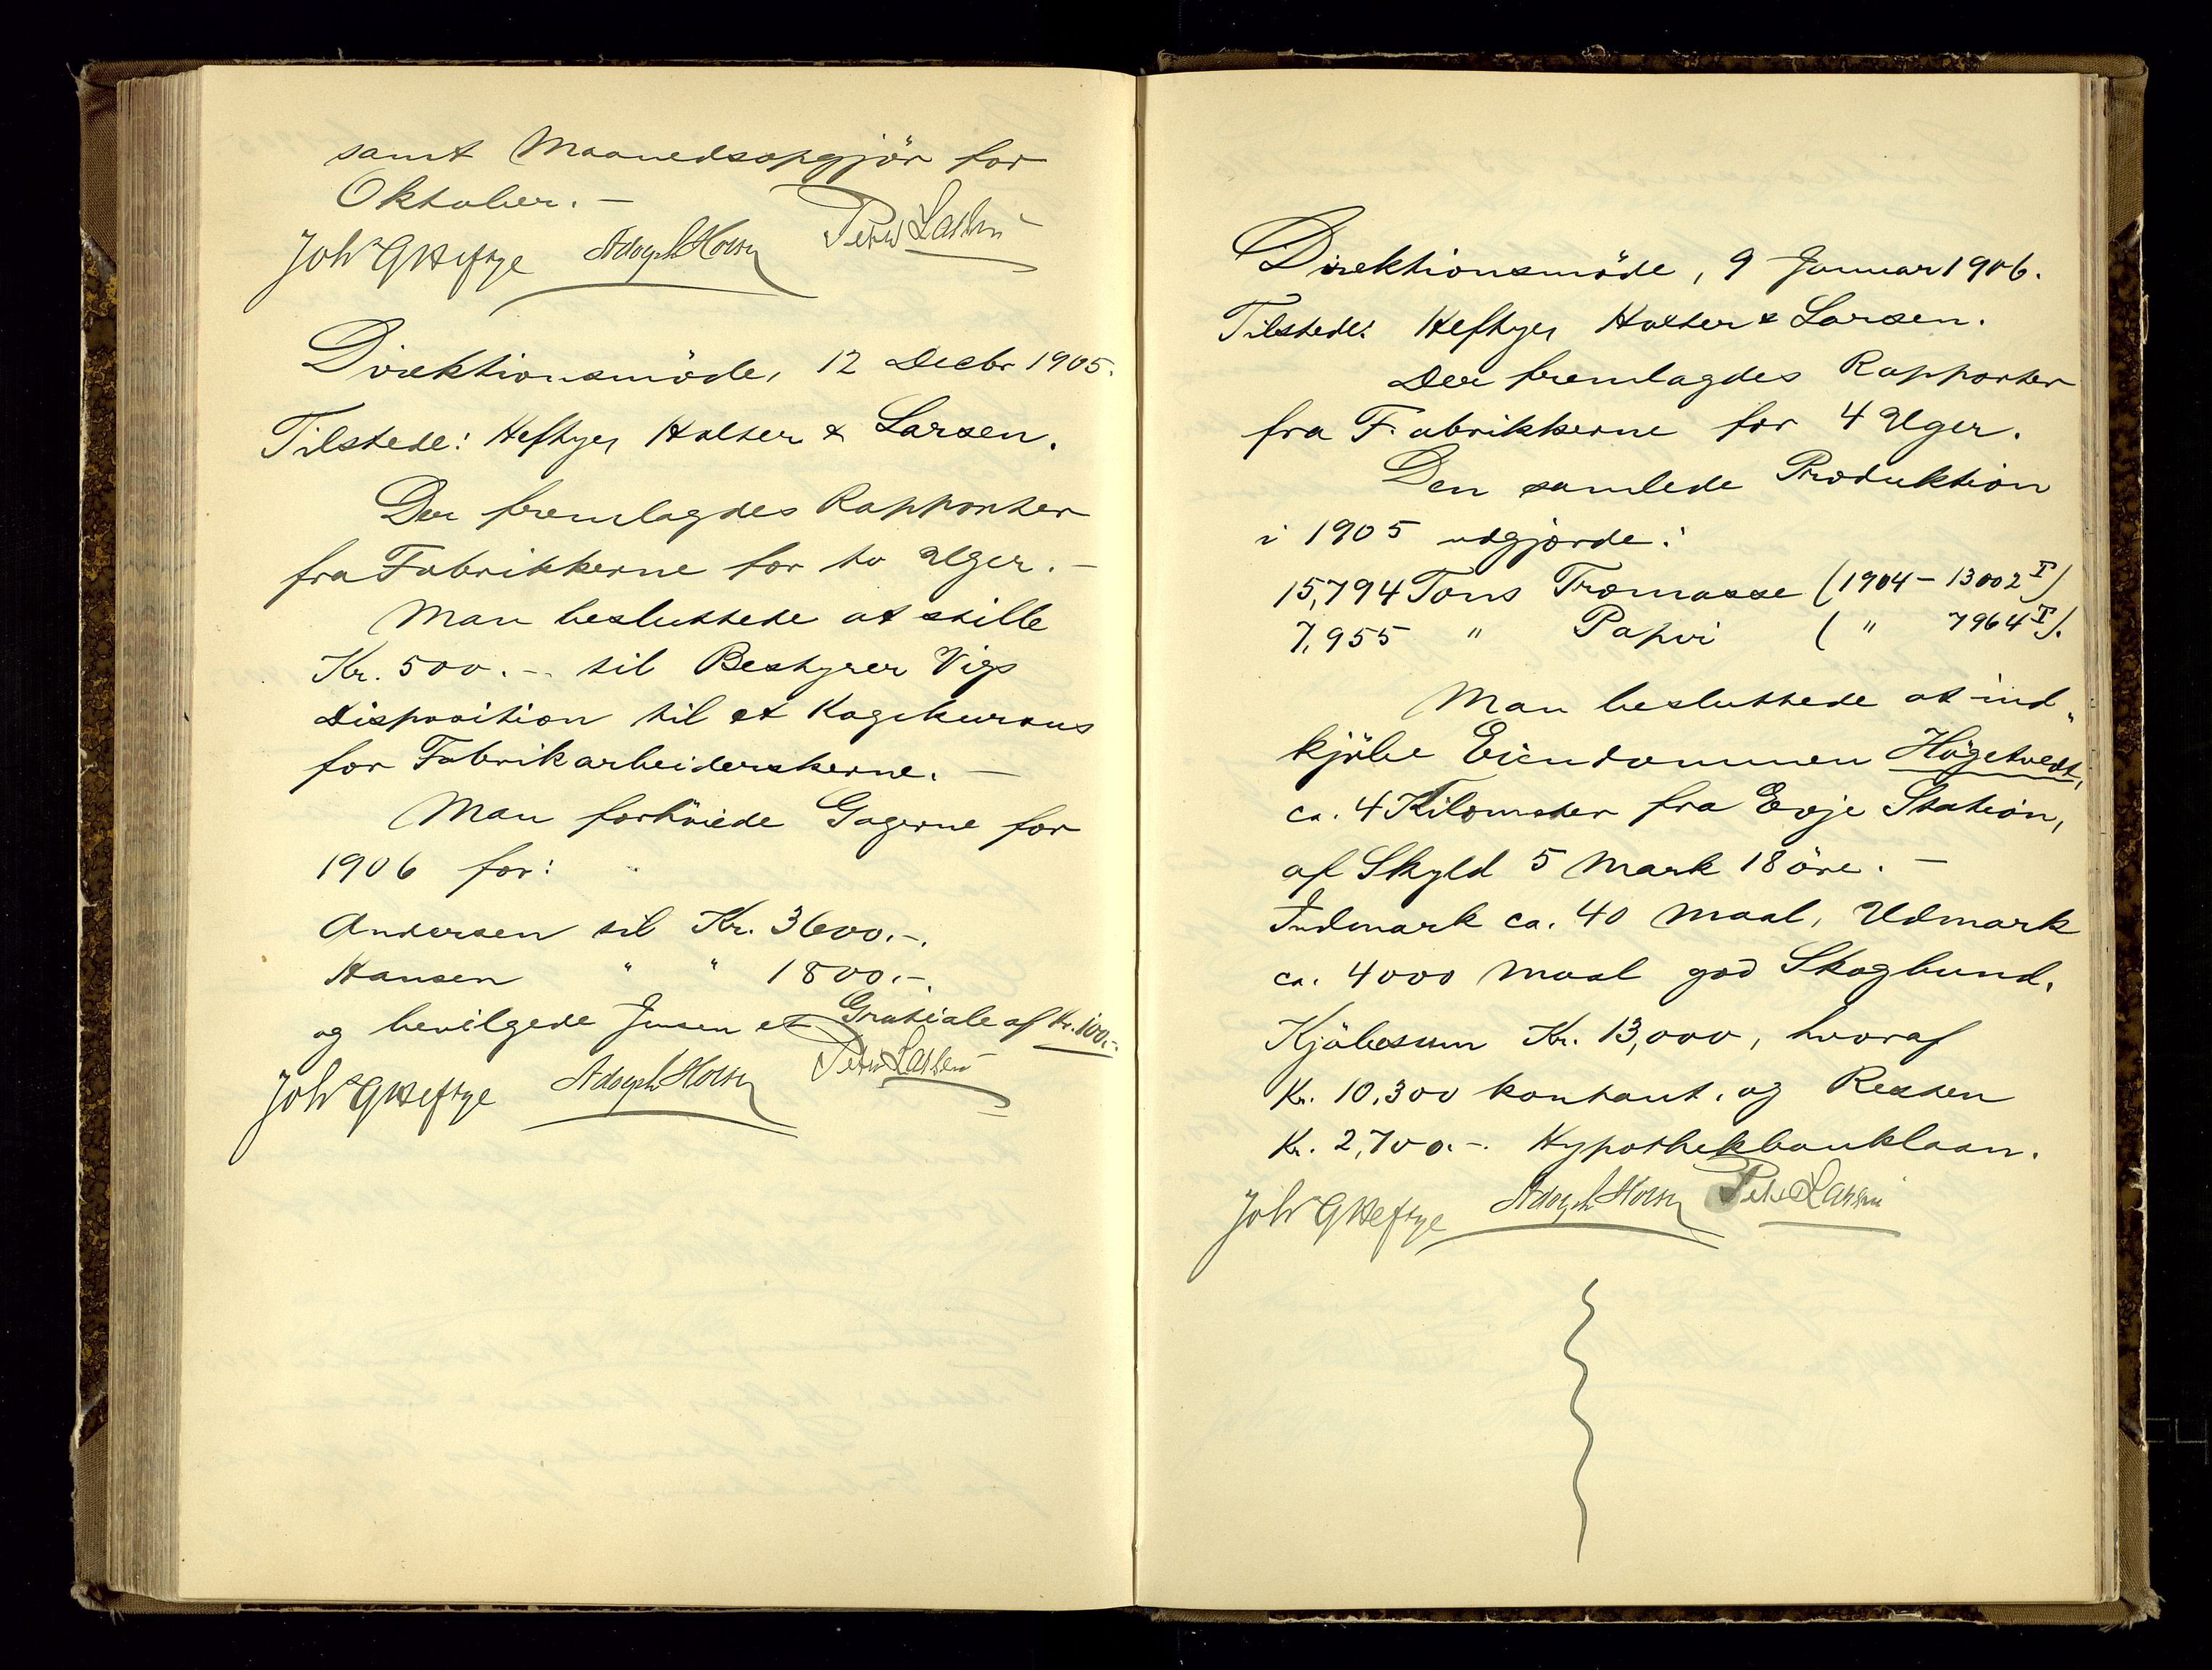 samt Maanedsopgjör for
Oktober. –
Johs GHeftye Adolph Holter Petter Larsen
Direktionsmöde, 12 Decbr 1905.
Tilstede: Heftye, Holter & Larsen.
Der fremlagdes Rapporter
fra Fabrikkerne for to Uger. –
Man besluttede at stille
Kr. 500.– til Bestyrer Vigs
Disposition til et Kogekursus
for Fabrikarbeiderskerne. –
Man forhöiede Gagerne for
1906 for:
Andersen til Kr. 3600.–.
Hansen " " 1800.–.
og bevilgede Jensen et Gratiale af Kr. 100.–.
Johs GHeftye Adolph Holter Petter Larsen
Direktionsmöde, 9 Januar 1906.
Tilstede: Heftye, Holter & Larsen.
Der fremlagdes Rapporter
fra Fabrikkerne for 4 Uger.
Den samlede Produktion
i 1905 udgjorde:
15,794 Tons Træmasse (1904 – 13002 T)
7,955 " Papir ( " 7964 T).
Man besluttede at ind„
kjöbe Eiendommen Högetvedt,
ca. 4 Kilometer fra Evje Station,
af Skyld 5 Mark 18 öre. –
Indmark ca. 40 Maal, Udmark
ca. 4000 Maal god Skogbund.
Kjöbesum Kr. 13,000, hvoraf
Kr. 10,300 kontant, og Resten
Kr. 2,700.–. Hypothekbanklaan.
Johs GHeftye Adolph Holter Petter Larsen